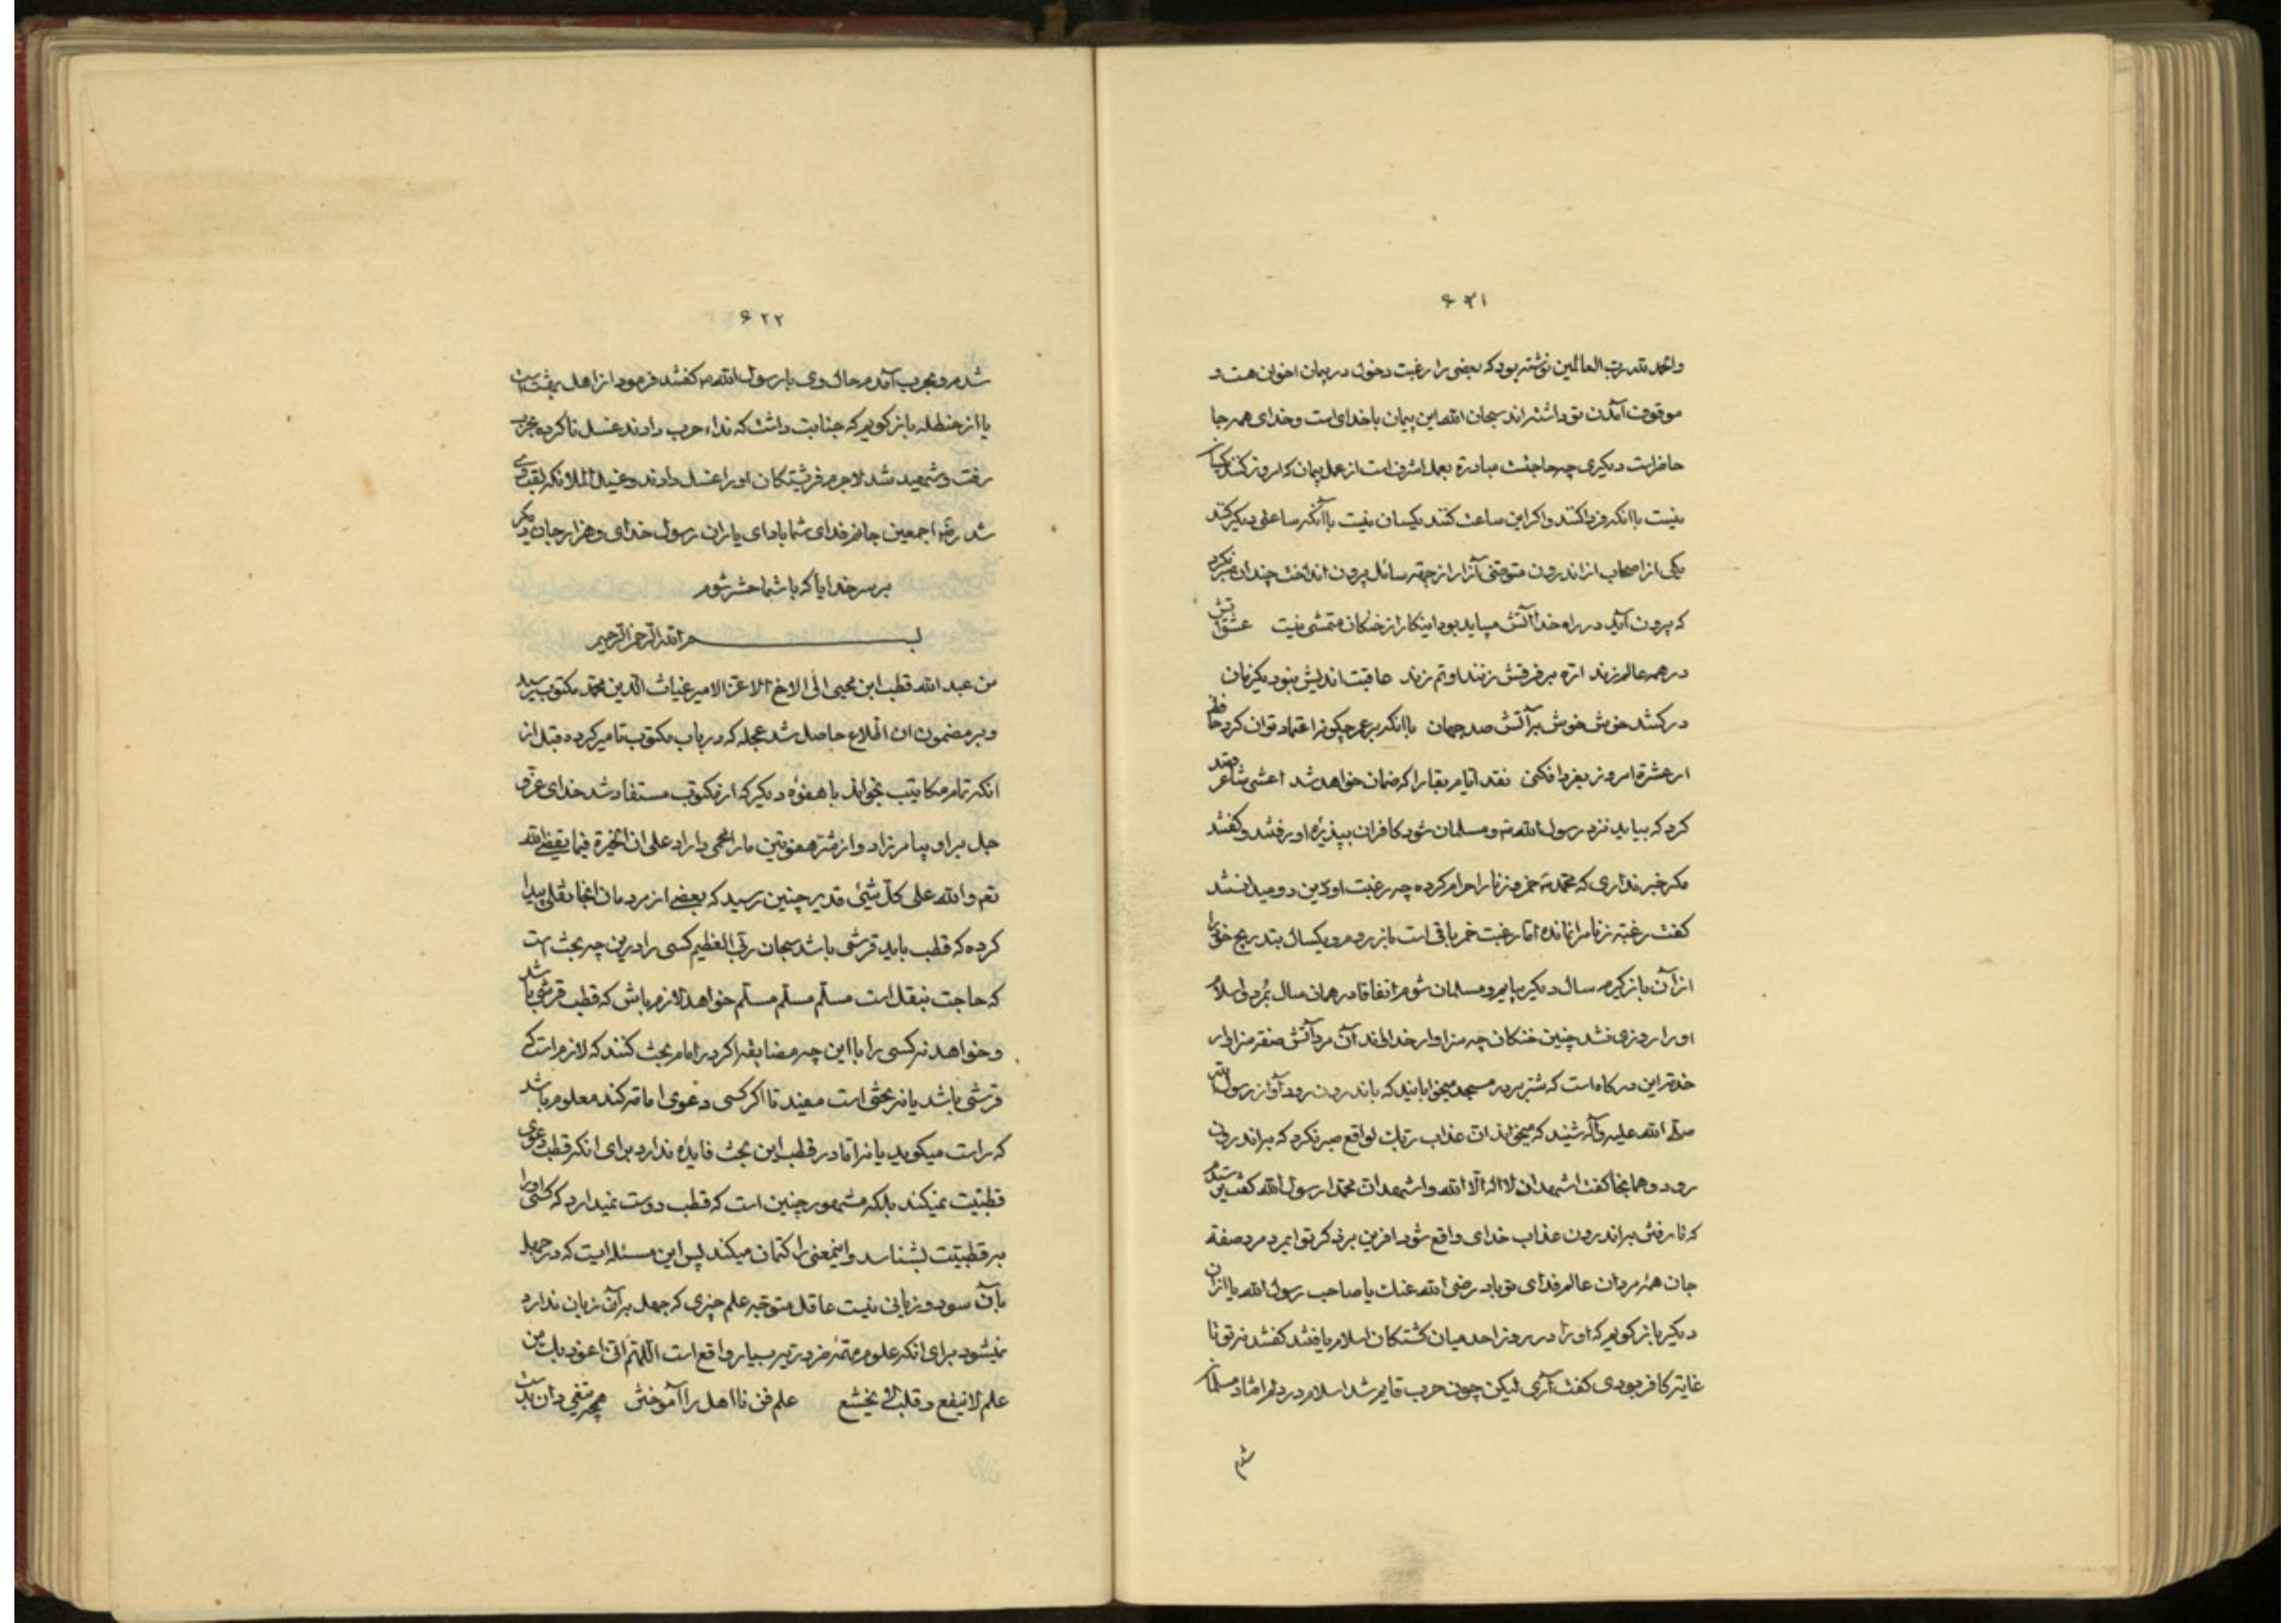 ۶۲۱
والحمد لله رب العالمین نوشته بود که بعضی را رغبت دخول در پیمان اخوان هست و
موقوف آمدن تو داشته‌اند سبحان الله این پیمان با خدای است و خدای همه جا
حاضر است دیگری چه حاجت مبادرة بعمل اشرف است از عمل پیمان که امروز کنند یکسان
نیست با آنکه فردا کنند و اگر این ساعت کنند یکسان نیست با آنکه ساعتی دیگر کنند
یکی از اصحاب از اندرون متوضی آزار از جهة سائل بیرون انداخت چندان صبر نکرد
که بیرون آید در راه خدا آتش میباید بود اینکار از خنکان متمشی نیست عشق آتش
در همه عالم زند اره بر فرقش زنند او تم زند عاقبت اندیش نبود یکزمان
در کشد خوش خوش بر آتش صد جهان با آنکه بر عمر چگونه اعتماد توان کرد حافظ
ار عشرة امروز بفردا فکنی نقد ایام بقا را که ضمان خواهد شد اعشی شاعر قصد
کرد که بیاید نزد رسول الله ص و مسلمان شود کافران بپذیره او رفتند و گفتند
مگر خبر نداری که محمد ص خمر و زنا را حرام کرده چه رغبت او باین دو میدانستند
گفت رغبة زنا مرا نمانده اما رغبت خمر باقی است باز پرد مرو یکسال بتدریج خوی را
از آن باز گیرم سال دیگر بیایم و مسلمان شوم اتفاقا در همان سال بمرد و اسلام
او را روزی نشد چنین خنکان چه سزاوار خدااند آن مرد آتش صفة سزاوار
خدمة این درگاه است که شتر بر در مسجد میخوابانید که باندرون رود آواز رسول الله
صلی الله علیه و آله شنید که میخواند ان عذاب ربک لواقع صبر نکرد که براندرون
رود و همانجا گفت اشهد ان لا اله الا الله و اشهد ان محمدا رسول الله گفت ترسیدم
که تا رفتن براندرون عذاب خدای واقع شود افرین بر فکر تو ایمرد مرد صفة
جان همه مردان عالم فدای تو باد رضی الله عنک یا صاحب رسول الله یا از آن
دیگر باز گویم که او را در روز احد میان کشتکان اسلام یافتند گفتند نه تو تا
غایة کافر بودی گفت آری لیکن چون حرب قایم شد اسلام در دلم افتاد مسلمان
شدم
۶۲۲
شدم و بحرب آمدم حال وی با رسول الله ص گفتند فرمود از اهل بهشت است
یا از حنظله باز گویم که جنابت داشت که نداء حرب دادند غسل ناکرده بحرب
رفت و شهید شد لاجرم فرشتکان او را غسل دادند و غسیل الملائکه لقب وی
شد رضهم اجمعین جانم فدای شما باد ای یاران رسول خدای و هزار جان دیگر
بر سر خدایا که با شما حشر شوم
بسم الله الرحمن الرحیم
من عبد الله قطب ابن محیی الی الاخ الاعز الامیر غیاث الدین محمد مکتوب رسید
و بر مضمون ان اطلاع حاصل شد عجله که در باب مکتوب تا میر کرده قبل از
انکه تمام مکاتیب بخواند با هفوه دیگر که از مکتوب مستفاد شد خدای عز و
جل بر او بیامرزاد و از شره هفوتین ما را محمی داراد علی ان الخیرة فیما یقضی الله
نعم و الله علی کل شیئ قدیر چنین رسید که بعضی از مردمان انجا نقلی پیدا
کرده که قطب باید قرشی باشد سبحان ربی العظیم کسی را درین چه بحث است
که حاجت بنقل است مسلم مسلم مسلم خواهد لازم باش که قطب قرشی باشد
و خواهد نه کسی را با این چه مضایقه اگر در امام بحث کنند که لازم است که
قرشی باشد یا نه بحثی است مفید تا اگر کسی دعوی امامة کند معلوم باشد
که راست میگوید یا نه اما در قطب این بحث فایده ندارد برای انکه قطب دعوی
قطبیت نمیکند بلکه مشهور چنین است که قطب دوست نمیدارد که کسی او را
به قطبیت بشناسد و اینمعنی را کتمان میکند پس این مسئله ایست که در جهل
بآن سود و زیانی نیست عاقل متوجه علم چیزی که جهل بر آن زیان ندارد
نمیشود برای انکه علوم مهمه ضروریه بسیار واقع است اللهم انی اعوذ بک من
علم لا ینفع و قلب لا یخشع علم فن نااهل را آموختن همچو تیغی دان بدست